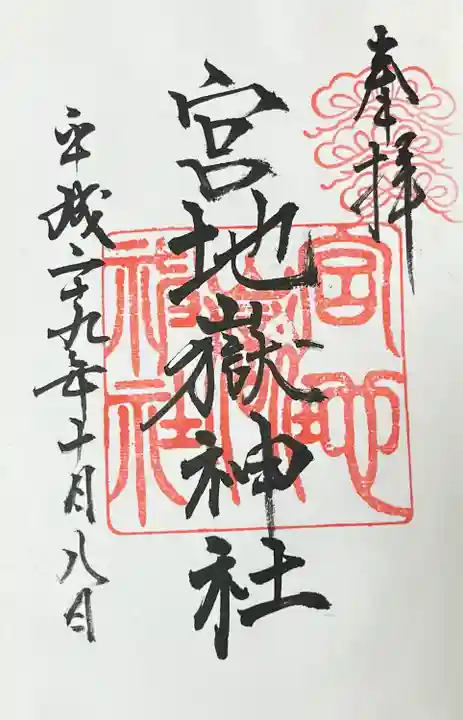 奉拝
宮地嶽神社
平成二十九年十月八日
宮地嶽神社